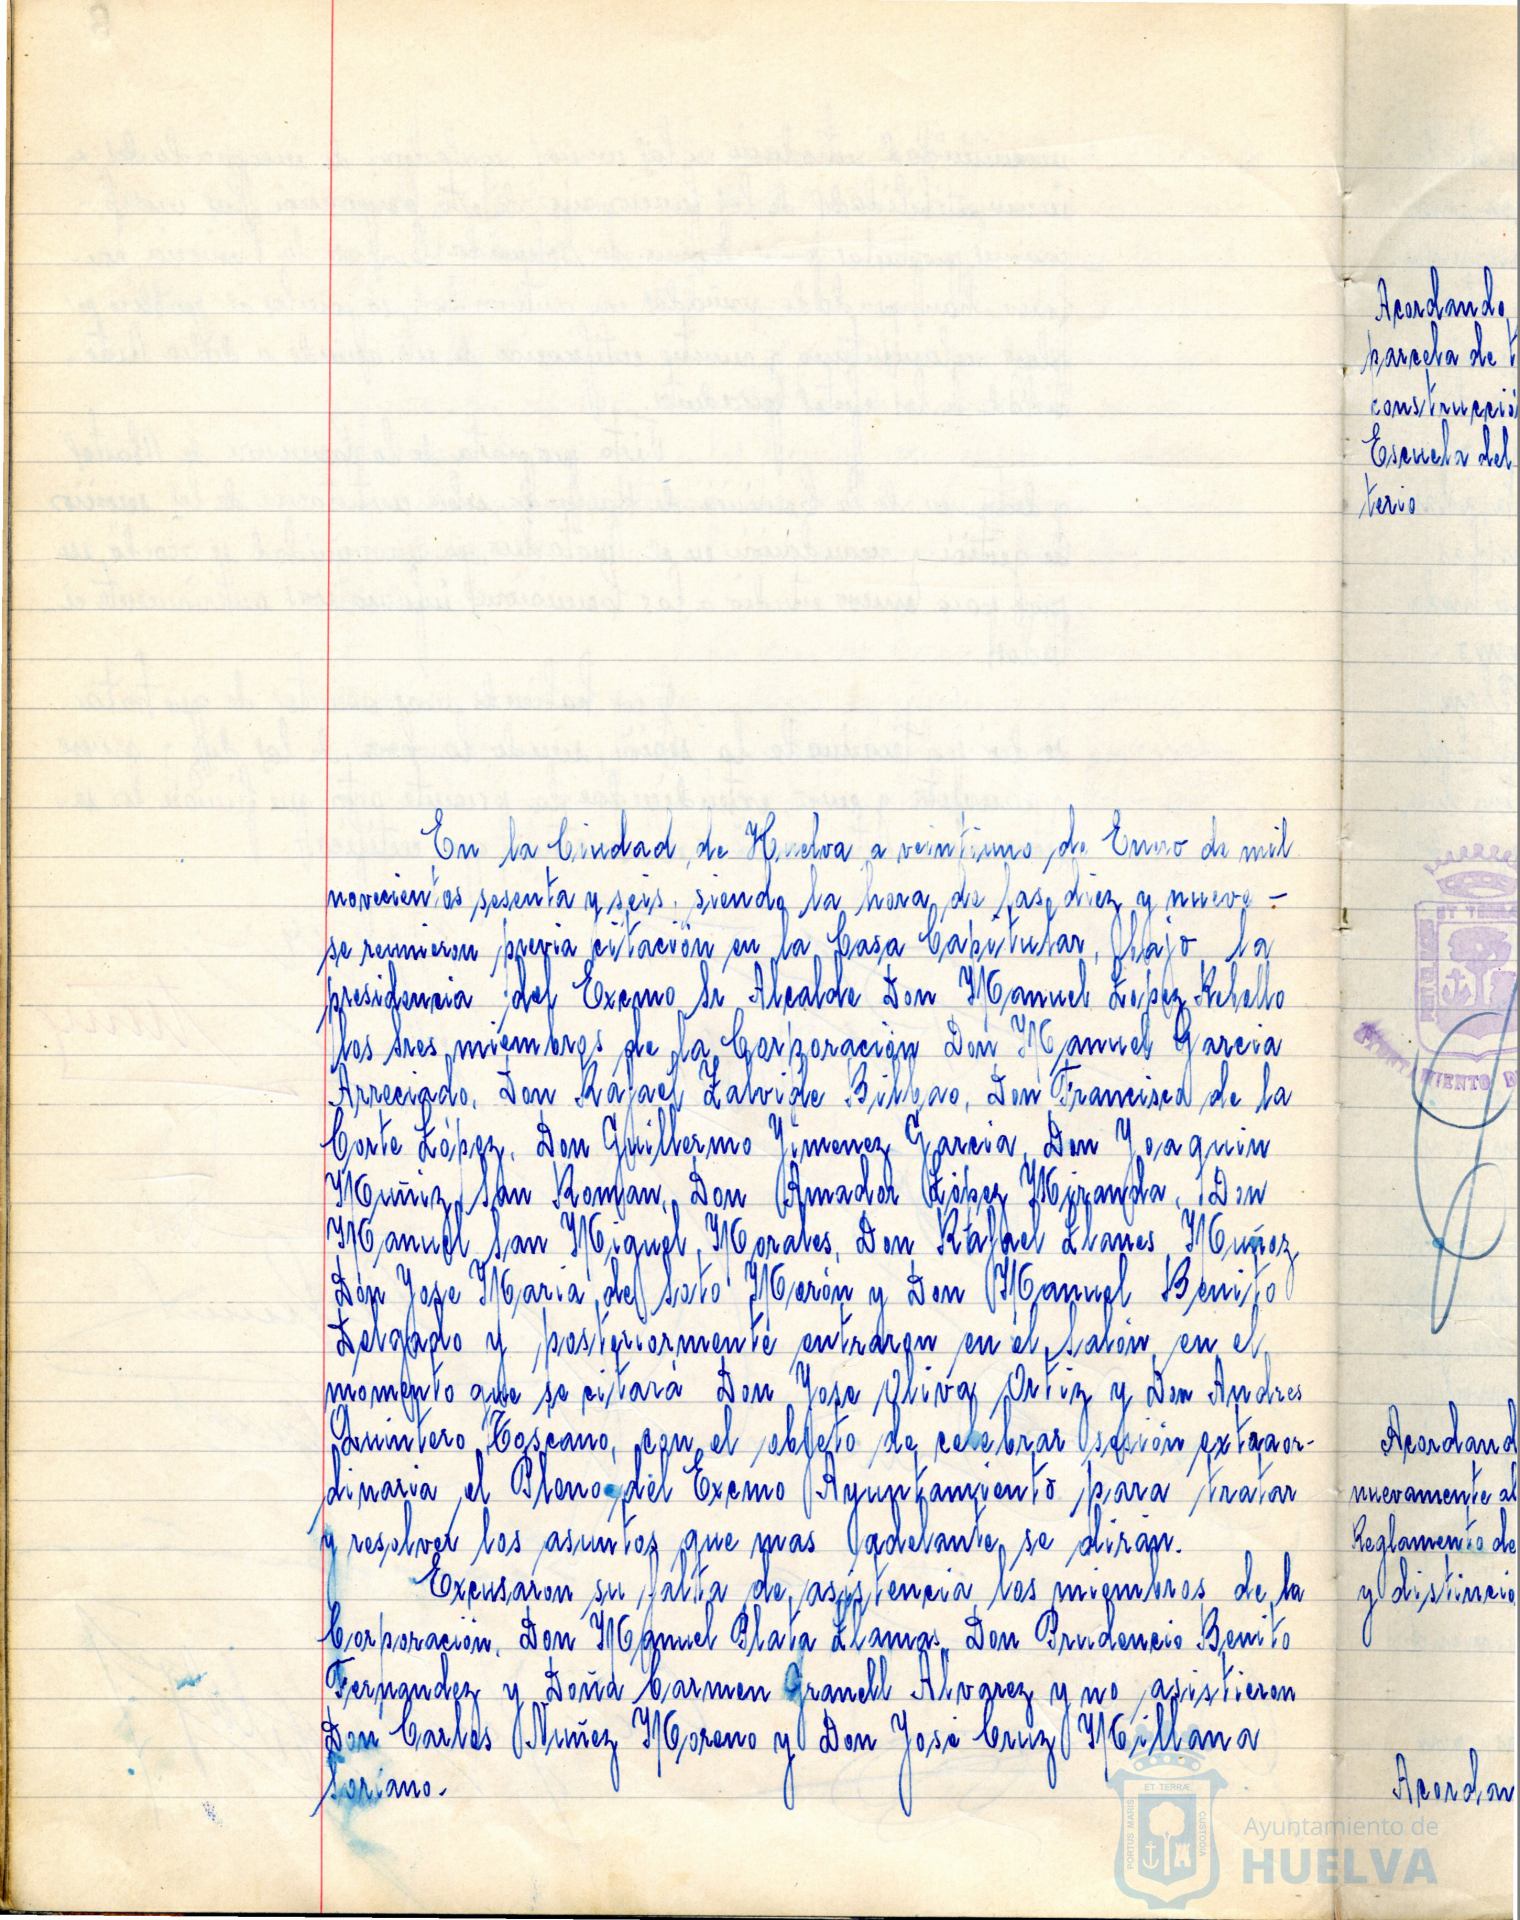 En la Ciudad de Huelva a veintiuno de Enero de mil
novecientos sesenta y seis, siendo la hora de las diez y nueve -
se reunieron previa citación en la Casa Capitular, bajo la
presidencia del Excmo Sr Alcalde Don Manuel López Rebollo
los sres miembros de la Corporación Don Manuel Garcia
Arreciado, Don Rafael Zalvide Bilbao, Don Francisco de la
Corte López, Don Guillermo Jimenez Garcia, Don Joaquin
Muñiz San Roman, Don Amador López Miranda, Don
Manuel San Miguel Morales, Don Rafael Llanes Muñoz
Don Jose Maria de Soto Morón y Don Manuel Benito
Delgado y posteriormente entraron en el salón, en el
momento que se citará Don Jose Oliva Ortiz y Don Andres
Quintero Toscano, con el objeto de celebrar sesión extraor-
dinaria el Pleno del Excmo Ayuntamiento para tratar
y resolver los asuntos que mas adelante se dirán.
Excusaron su falta de asistencia los miembros de la
Corporación, Don Manuel Plata Llamas, Don Prudencio Benito
Fernandez y Doña Carmen Granell Alvarez y no asistieron
Don Carlos Nuñez Moreno y Don José Cruz Millana
Soriano.
Acordando
parcela de t
construcció
Escuela del
terio
ET TERRA
Acordand
nuevamente al
Reglamento de
y distincio
Acordan
PORTUS MARIS
ET TERRÆ
CUSTODIA
Ayuntamiento de
HUELVA